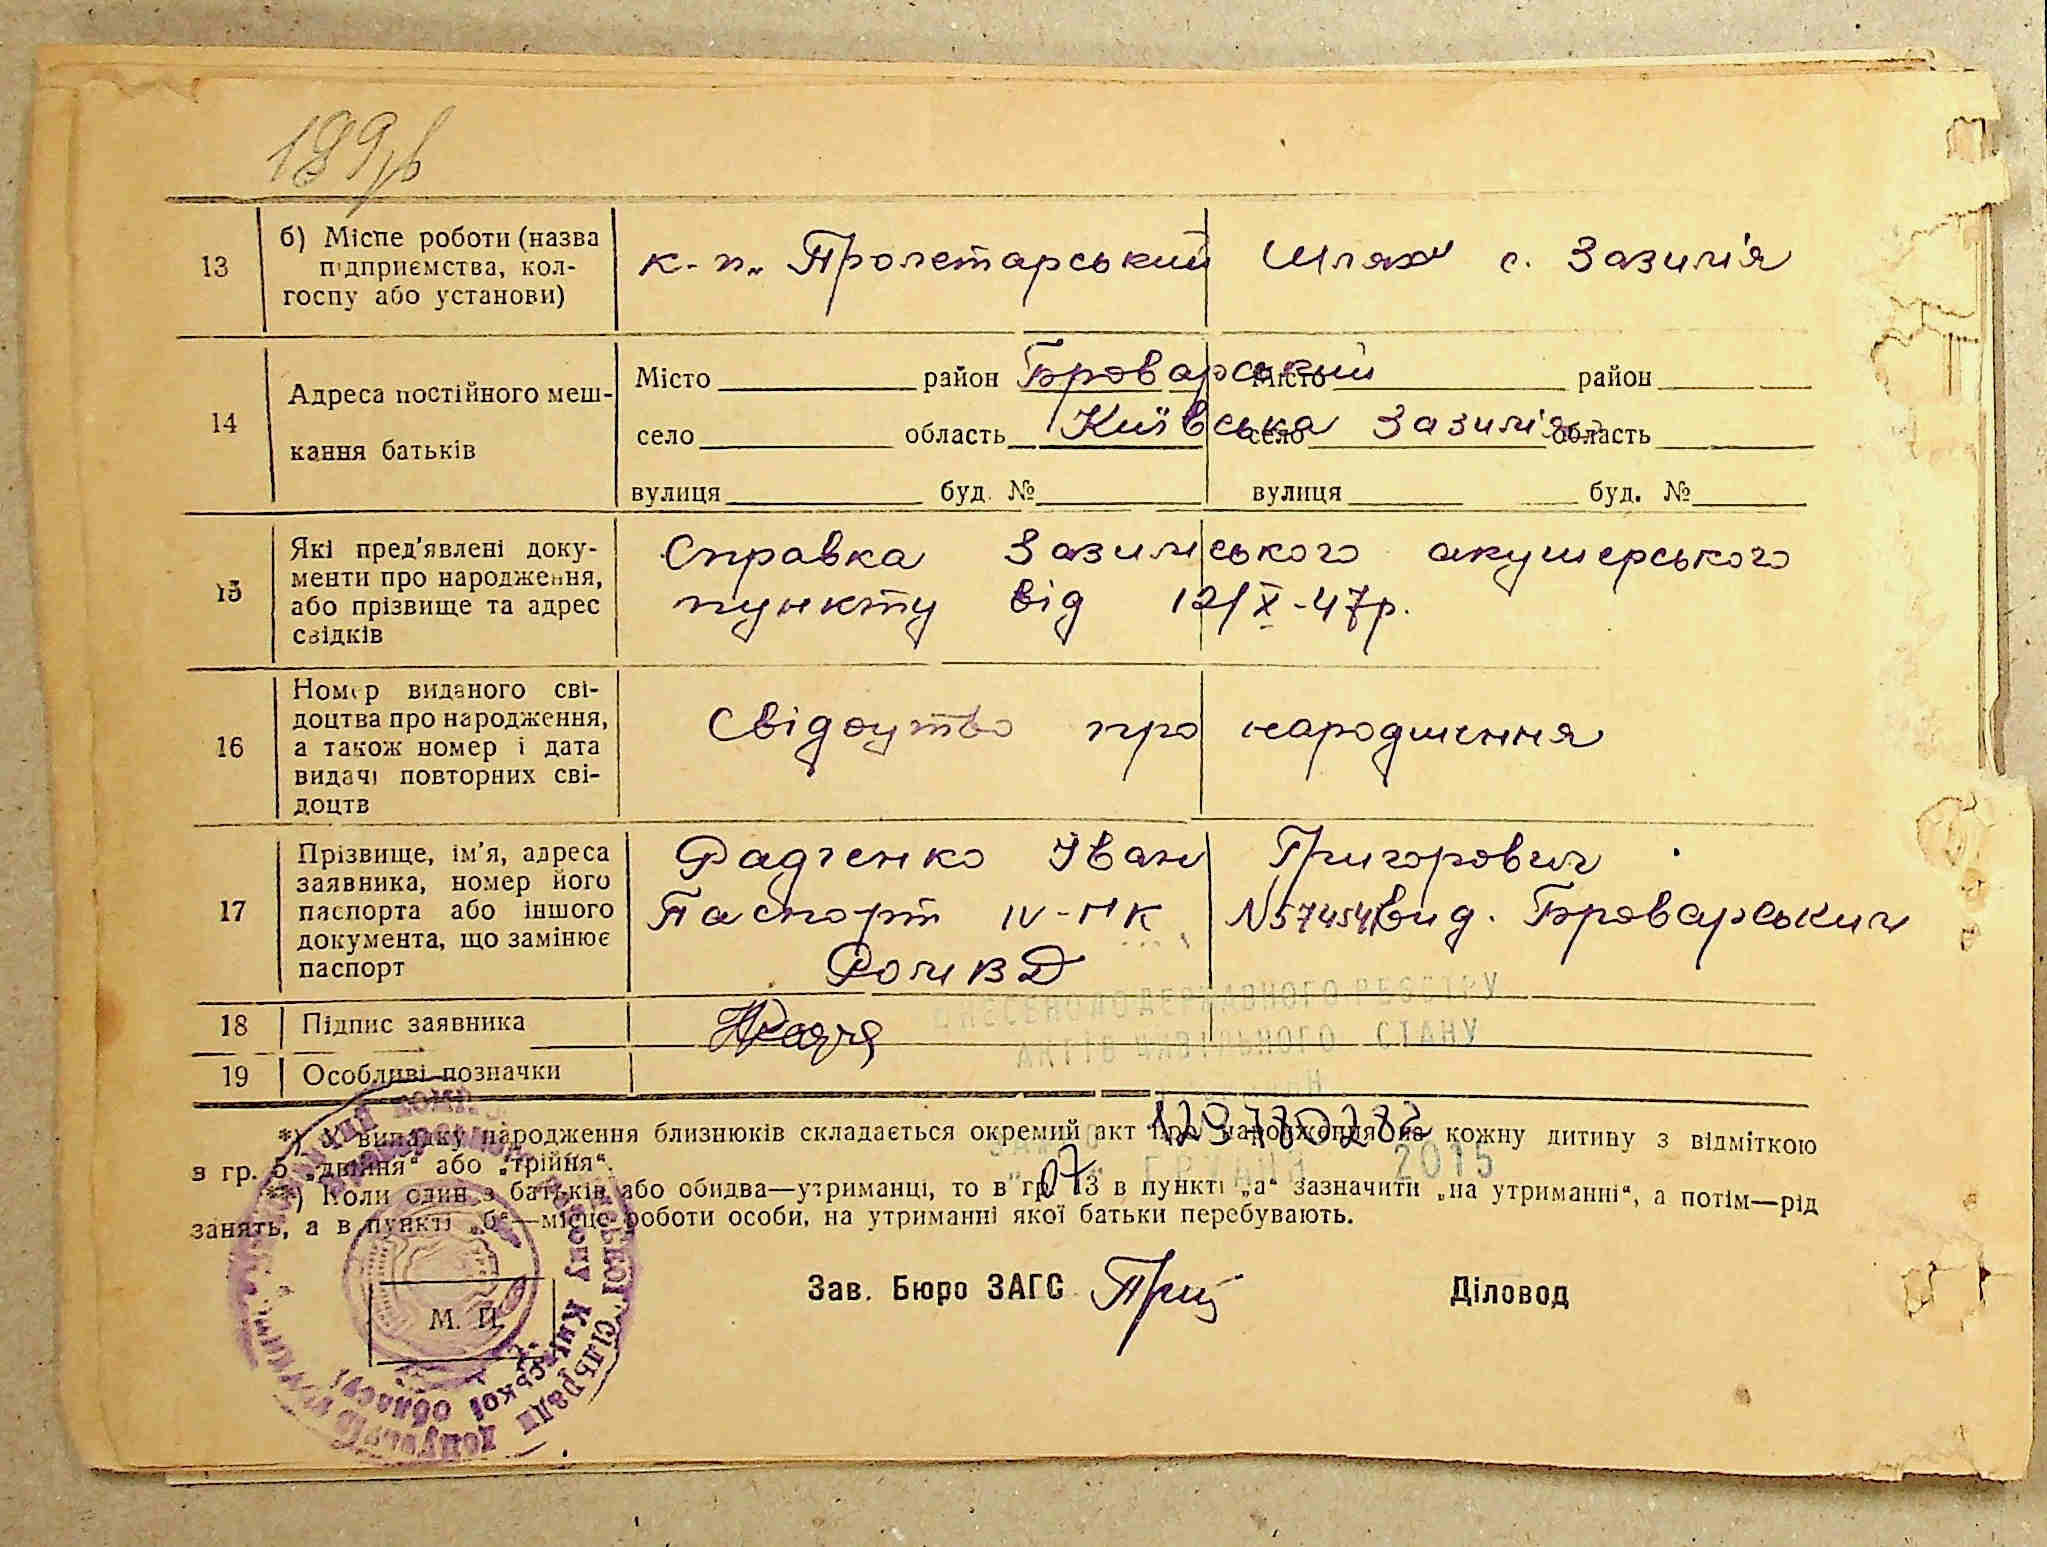 189зв
13
б) Місце роботи (назва
підприємства, кол-
госпу або установи)
к-п „Пролетарський Шлях" с. Зазим'я
14
Адреса постійного меш-
кання батьків
Місто район Броварський Місто район
село область Київська село Зазим'я область
вулиця буд. № вулиця буд. №
15
Які пред'явлені доку-
менти про народження,
або прізвище та адрес
свідків
Справка Зазимського акушерського
пункту від 12/X-47р.
16
Номер виданого сві-
доцтва про народження,
а також номер і дата
видачі повторних сві-
доцтв
Свідоцтво про народження
17
Прізвище, ім'я, адреса
заявника, номер його
паспорта або іншого
документа, що замінює
паспорт
Радченко Іван Григорович
Паспорт IV-НК вид. Броварським
РОМВД
18
Підпис заявника
19
Особливі позначки
ВНЕСЕНО ДО ДЕРЖАВНОГО РЕЄСТРУ
АКТІВ ЦИВІЛЬНОГО СТАНУ
ГРОМАДЯН
ЗА № 129780282
"07" ГРУДНЯ 2015
*) У випадку народження близнюків складається окремий акт про народження на кожну дитину з відміткою
в гр. 5 „двійня“ або „трійня“.
**) Коли один з батьків або обидва—утриманці, то в гр. 13 в пункті „а“ зазначити „на утриманні“, а потім—рід
занять, а в пункті „б“—місце роботи особи, на утриманні якої батьки перебувають.
М. П.
Зав. Бюро ЗАГС
Діловод